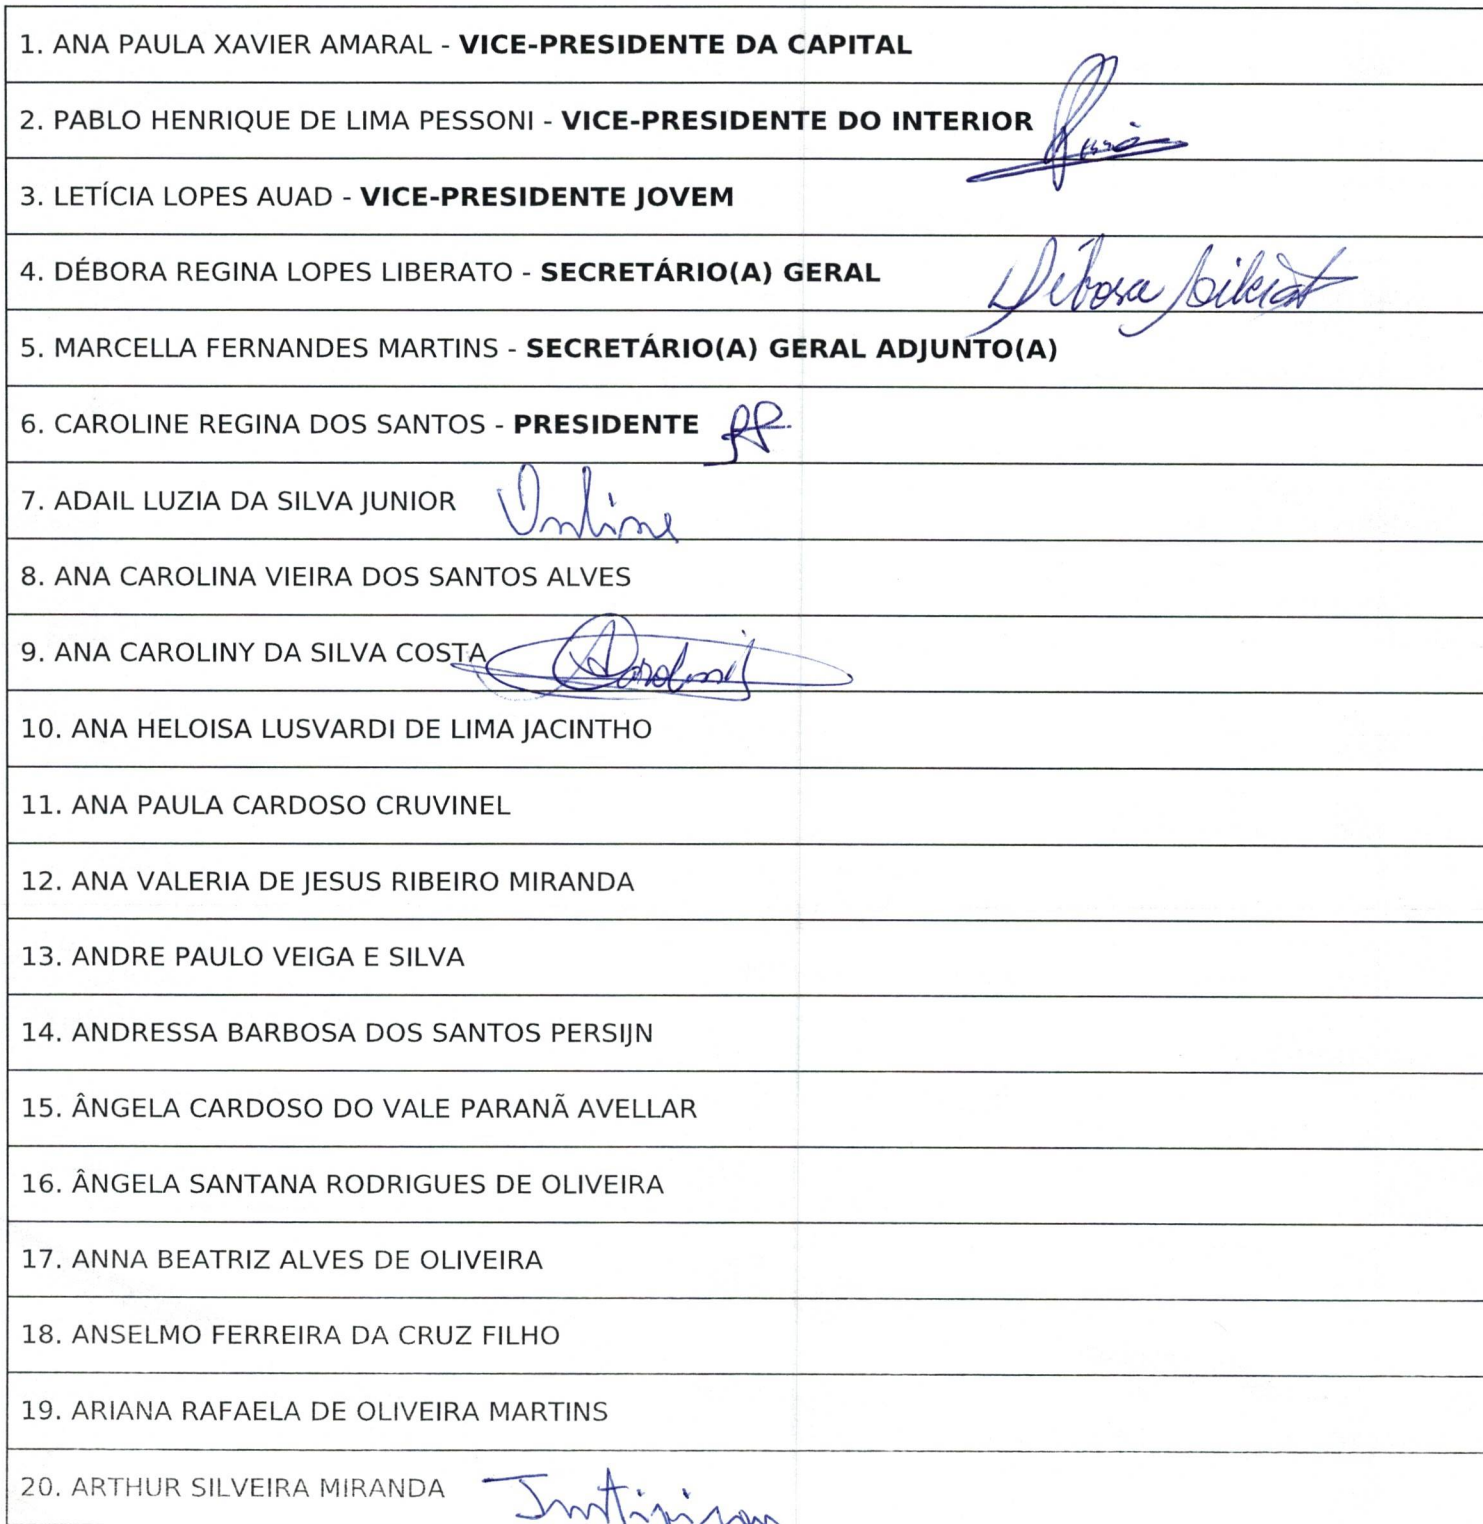 1. ANA PAULA XAVIER AMARAL - VICE-PRESIDENTE DA CAPITAL
2. PABLO HENRIQUE DE LIMA PESSONI - VICE-PRESIDENTE DO INTERIOR
3. LETÍCIA LOPES AUAD - VICE-PRESIDENTE JOVEM
4. DÉBORA REGINA LOPES LIBERATO - SECRETÁRIO(A) GERAL Débora Liberat
5. MARCELLA FERNANDES MARTINS - SECRETÁRIO(A) GERAL ADJUNTO(A)
6. CAROLINE REGINA DOS SANTOS - PRESIDENTE
7. ADAIL LUZIA DA SILVA JUNIOR Online
8. ANA CAROLINA VIEIRA DOS SANTOS ALVES
9. ANA CAROLINY DA SILVA COSTA
10. ANA HELOISA LUSVARDI DE LIMA JACINTHO
11. ANA PAULA CARDOSO CRUVINEL
12. ANA VALERIA DE JESUS RIBEIRO MIRANDA
13. ANDRE PAULO VEIGA E SILVA
14. ANDRESSA BARBOSA DOS SANTOS PERSIJN
15. ÂNGELA CARDOSO DO VALE PARANÃ AVELLAR
16. ÂNGELA SANTANA RODRIGUES DE OLIVEIRA
17. ANNA BEATRIZ ALVES DE OLIVEIRA
18. ANSELMO FERREIRA DA CRUZ FILHO
19. ARIANA RAFAELA DE OLIVEIRA MARTINS
20. ARTHUR SILVEIRA MIRANDA